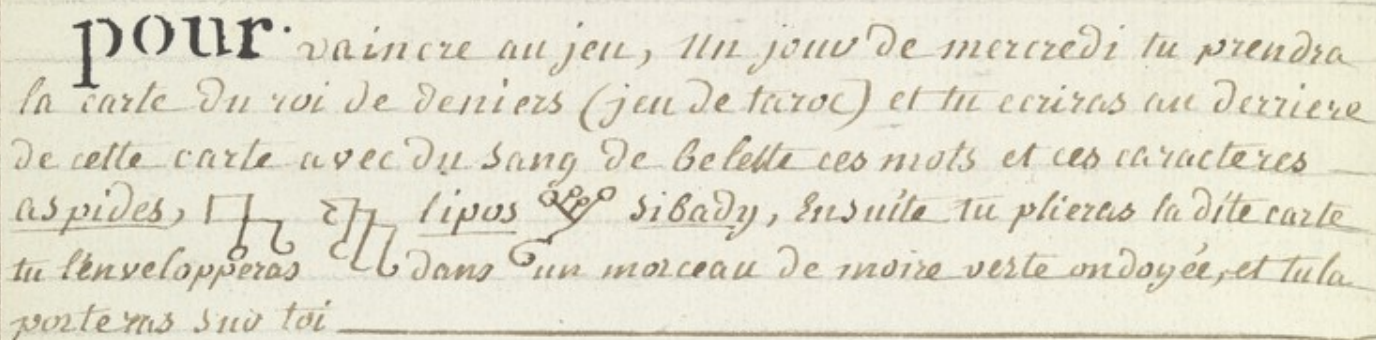 pour vaincre au jeu, un jour de mercredi tu prendra
la carte du roi de deniers (jeu de taroc) et tu ecriras au derriere
de cette carte avec du sang de belette ces mots et ces caracteres
aspides, lipos sibady, Ensuite tu plieras la dite carte
tu l'envelopperas dans un morceau de moire verte ondoyée, et tu la
porteras sur toi